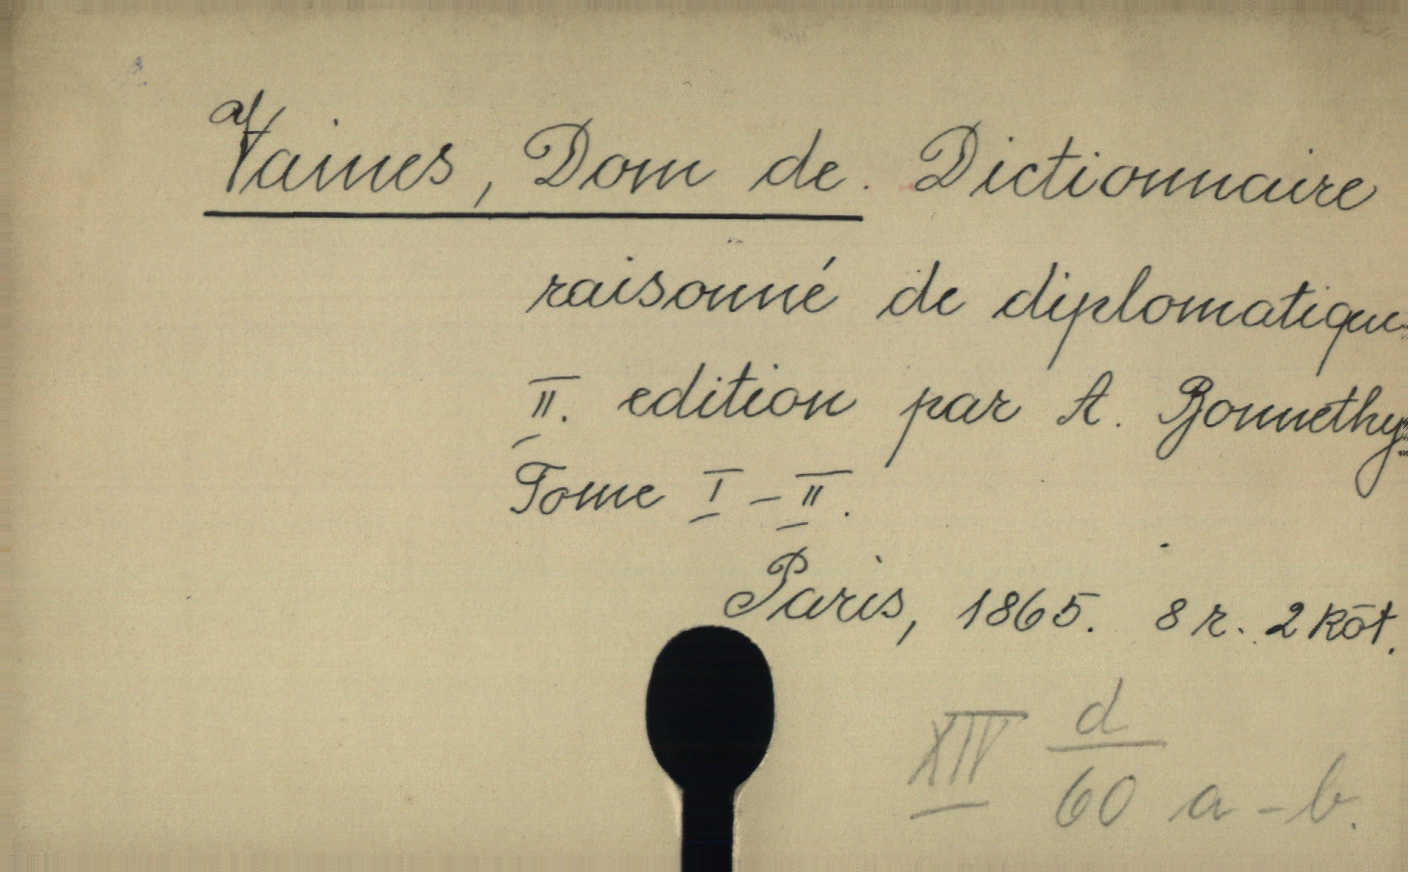 Vaines, Dom de. Dictionnaire
raisonné de diplomatique
II. edition par A. Bonnethy
Tome I – II.
Paris, 1865. 8 r. 2 köt.
XIV d/60 a – b.